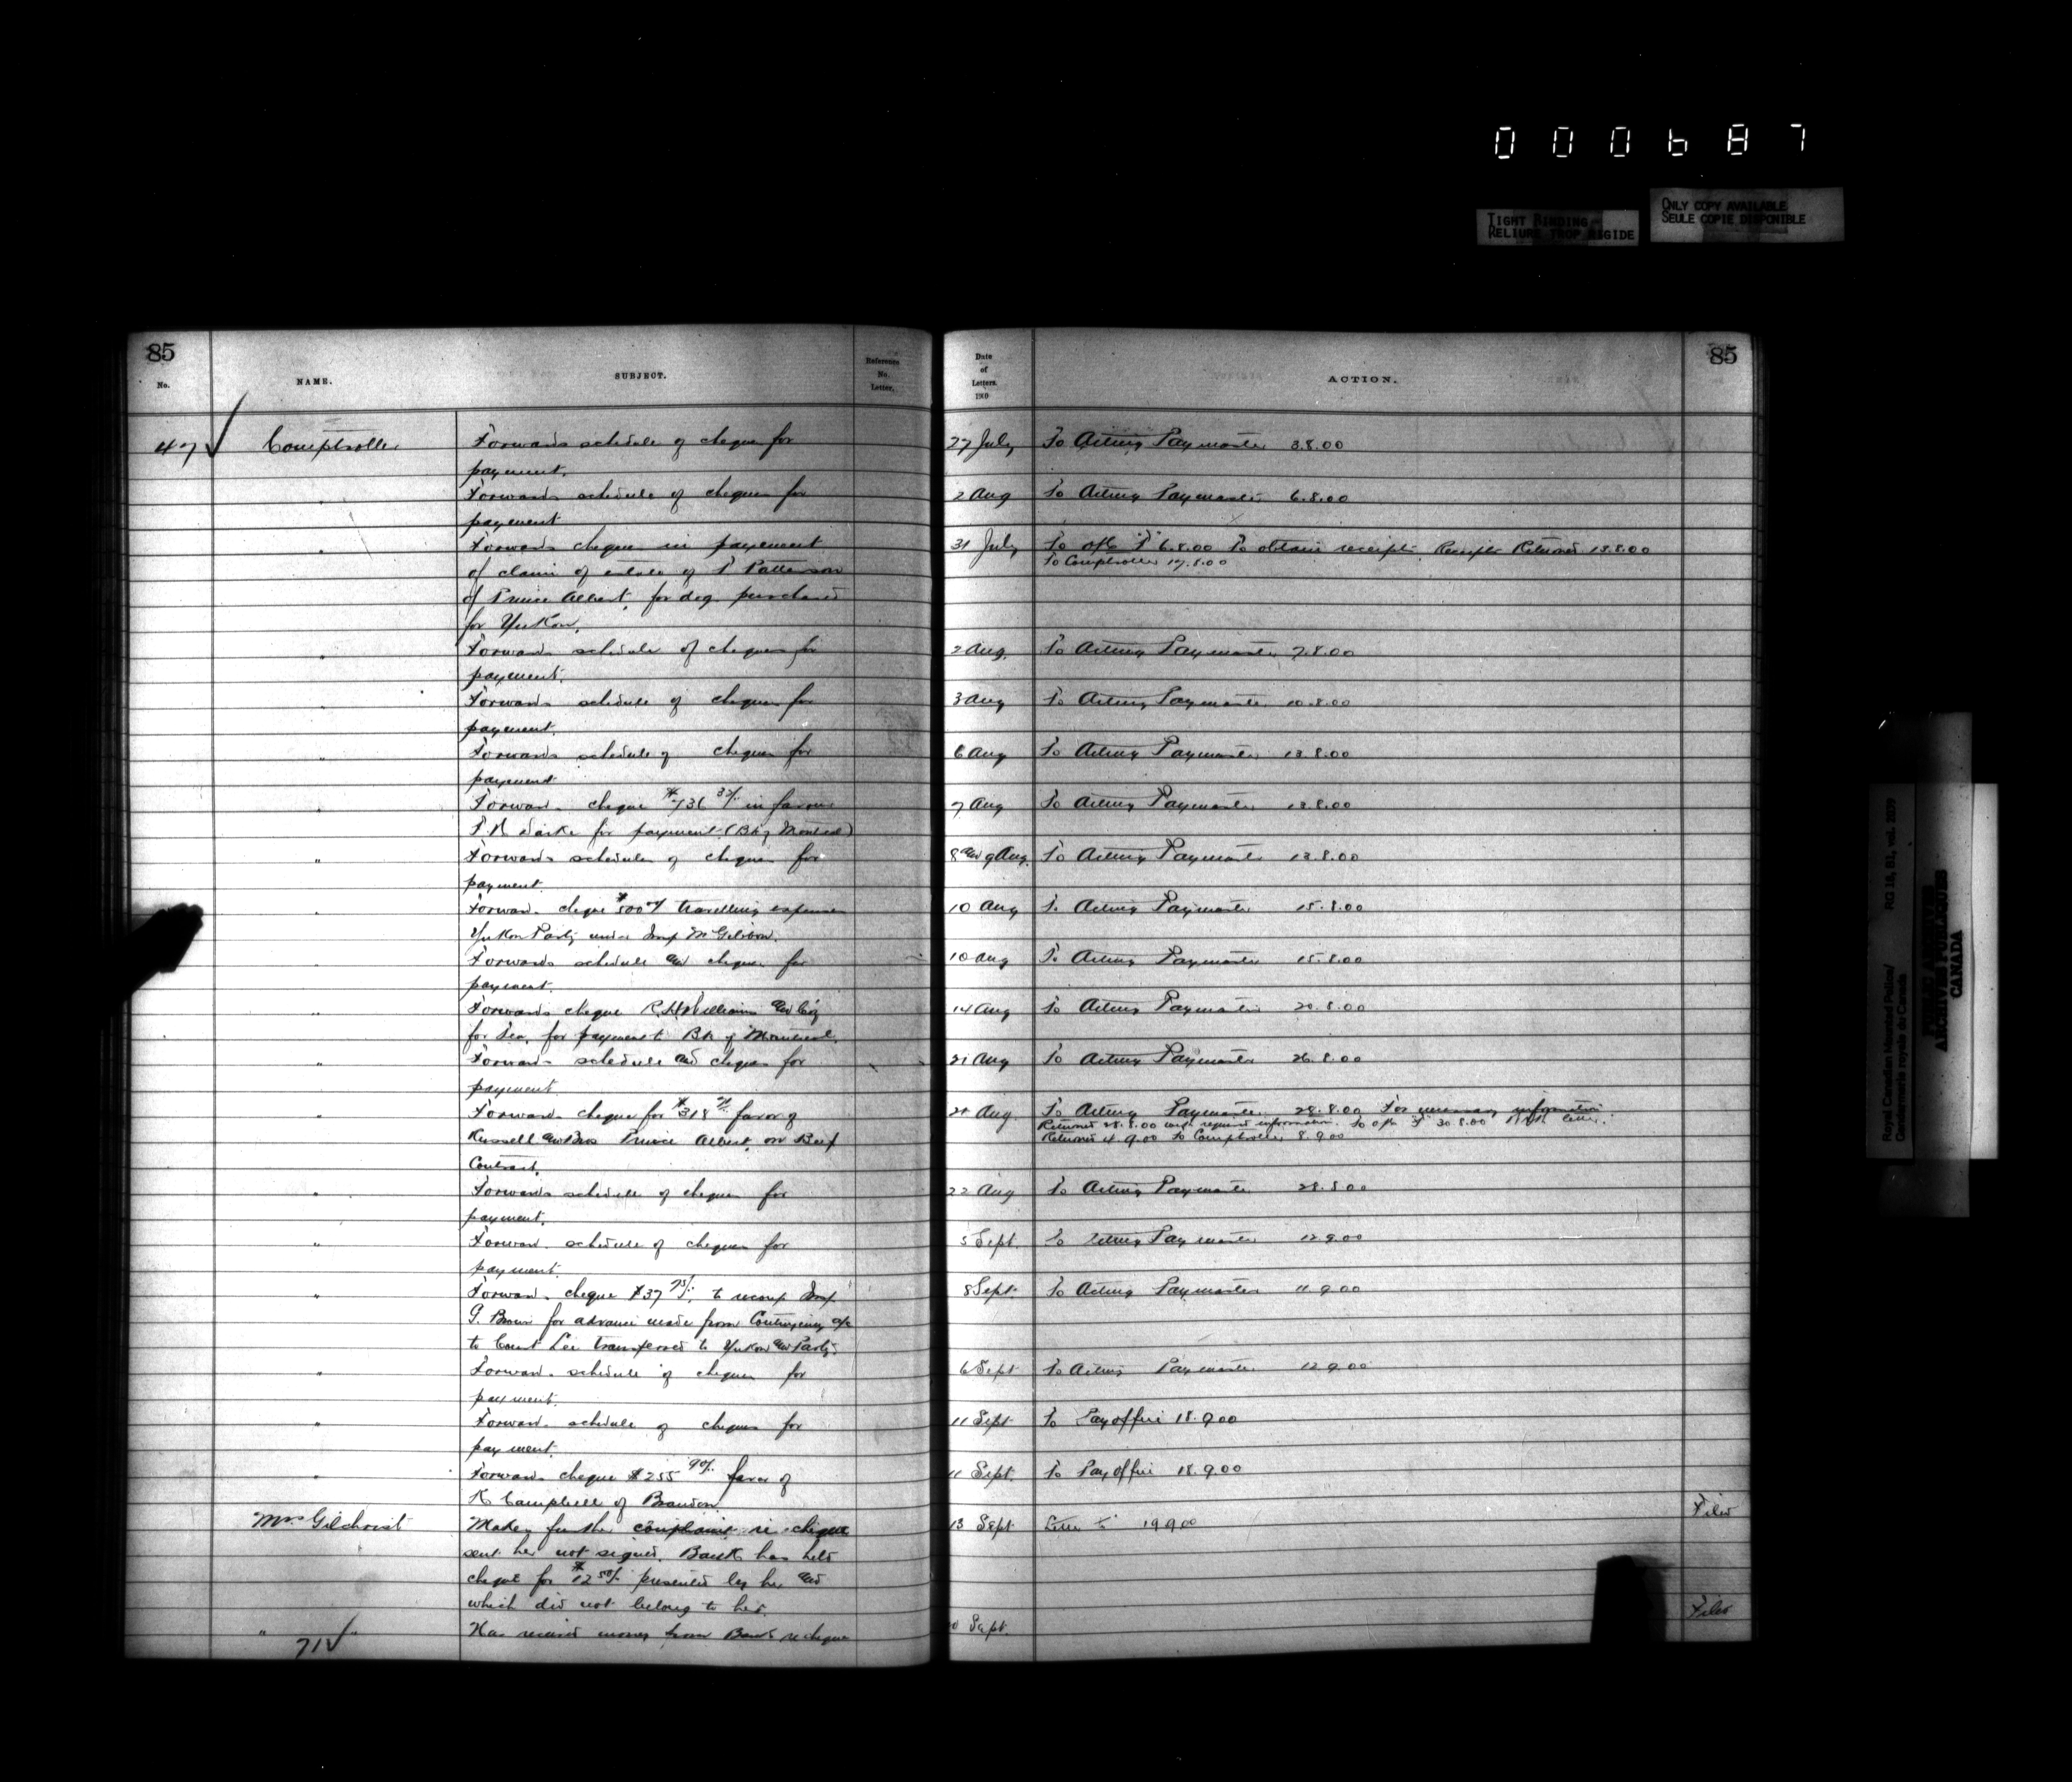 000687
TIGHT BINDING
RELIURE TROP RIGIDE
ONLY COPY AVAILABLE
SEULE COPIE DISPONIBLE
85
No.
NAME.
SUBJECT.
Reference
No.
Letter.
47 Comptroller
Forwards schedule of cheques for
payment.
" Forwards schedule of cheques for
payment
" Forwards cheque in payment
of claim of estate of T Patterson
of Prince Albert, for dog purchased
for Yukon.
" Forwards schedule of cheques for
payment.
" Forwards schedule of cheques for
payment.
" Forwards schedule of cheques for
payment
" Forwards cheque $736 in favour
for payment (Bk of Montreal)
" Forwards schedules of cheques for
payment.
" Forwards cheque $500 travelling expenses
Yukon Party under Insp McGibbon.
" Forwards schedule and cheques for
payment.
" Forwards cheque R.H. Williams and Co'y
for payment Bk of Montreal.
" Forwards schedule and cheques for
payment
" Forwards cheque for $318 favor of
Russell and Bros Prince Albert, on Beef
Contract.
" Forwards schedule of cheques for
payment.
" Forwards schedule of cheques for
payment.
" Forwards cheque $37 75/ to recoup Insp
G. Brown for advance made from Contingency a/c
to Const Lee transferred to Yukon Party.
" Forwards schedule of cheques for
payment.
" Forwards schedule of cheques for
payment.
" Forwards cheque $255 90/ favor of
K Campbell of Brandon.
Mrs Gilchrist Makes further complaint re cheque
sent her not signed. Bank has held
cheque for $12 50/ presented by her and
which did not belong to her.
" " Has received money from Bank re cheque
71
Date
of
Letters.
1900
ACTION.
85
27 July To Acting Paymaster 3.8.00
2 Aug To Acting Paymaster 6.8.00
31 July To 6.8.00 To obtain receipts. Receipts Returned 15.8.00
To Comptroller 17.8.00
2 Aug. To Acting Paymaster 7.8.00
3 Aug To Acting Paymaster 10.8.00
6 Aug To Acting Paymaster 13.8.00
7 Aug To Acting Paymaster 13.8.00
8 and 9 Aug. To Acting Paymaster 13.8.00
10 Aug To Acting Paymaster 15.8.00
10 Aug To Acting Paymaster 15.8.00
14 Aug To Acting Paymaster 20.8.00
21 Aug To Acting Paymaster 26.8.00
21 Aug. To Acting Paymaster 28.8.00 For necessary information.
Returned 28.8.00 with required information. 30.8.00 With letter.
Returned 4.9.00 To Comptroller 8.9.00
22 Aug To Acting Paymaster 28.8.00
5 Sept. To Acting Paymaster 12.9.00
8 Sept. To Acting Paymaster 11.9.00
6 Sept To Acting Paymaster 12.9.00
11 Sept To Pay office 18.9.00
11 Sept. To Pay office 18.9.00
13 Sept Letter to 19.9.00
Filed
Sept.
Filed
Royal Canadian Mounted Police/
Gendarmerie royale du Canada
RG 18, B1, vol.
PUBLIC ARCHIVES
ARCHIVES PUBLIQUES
CANADA